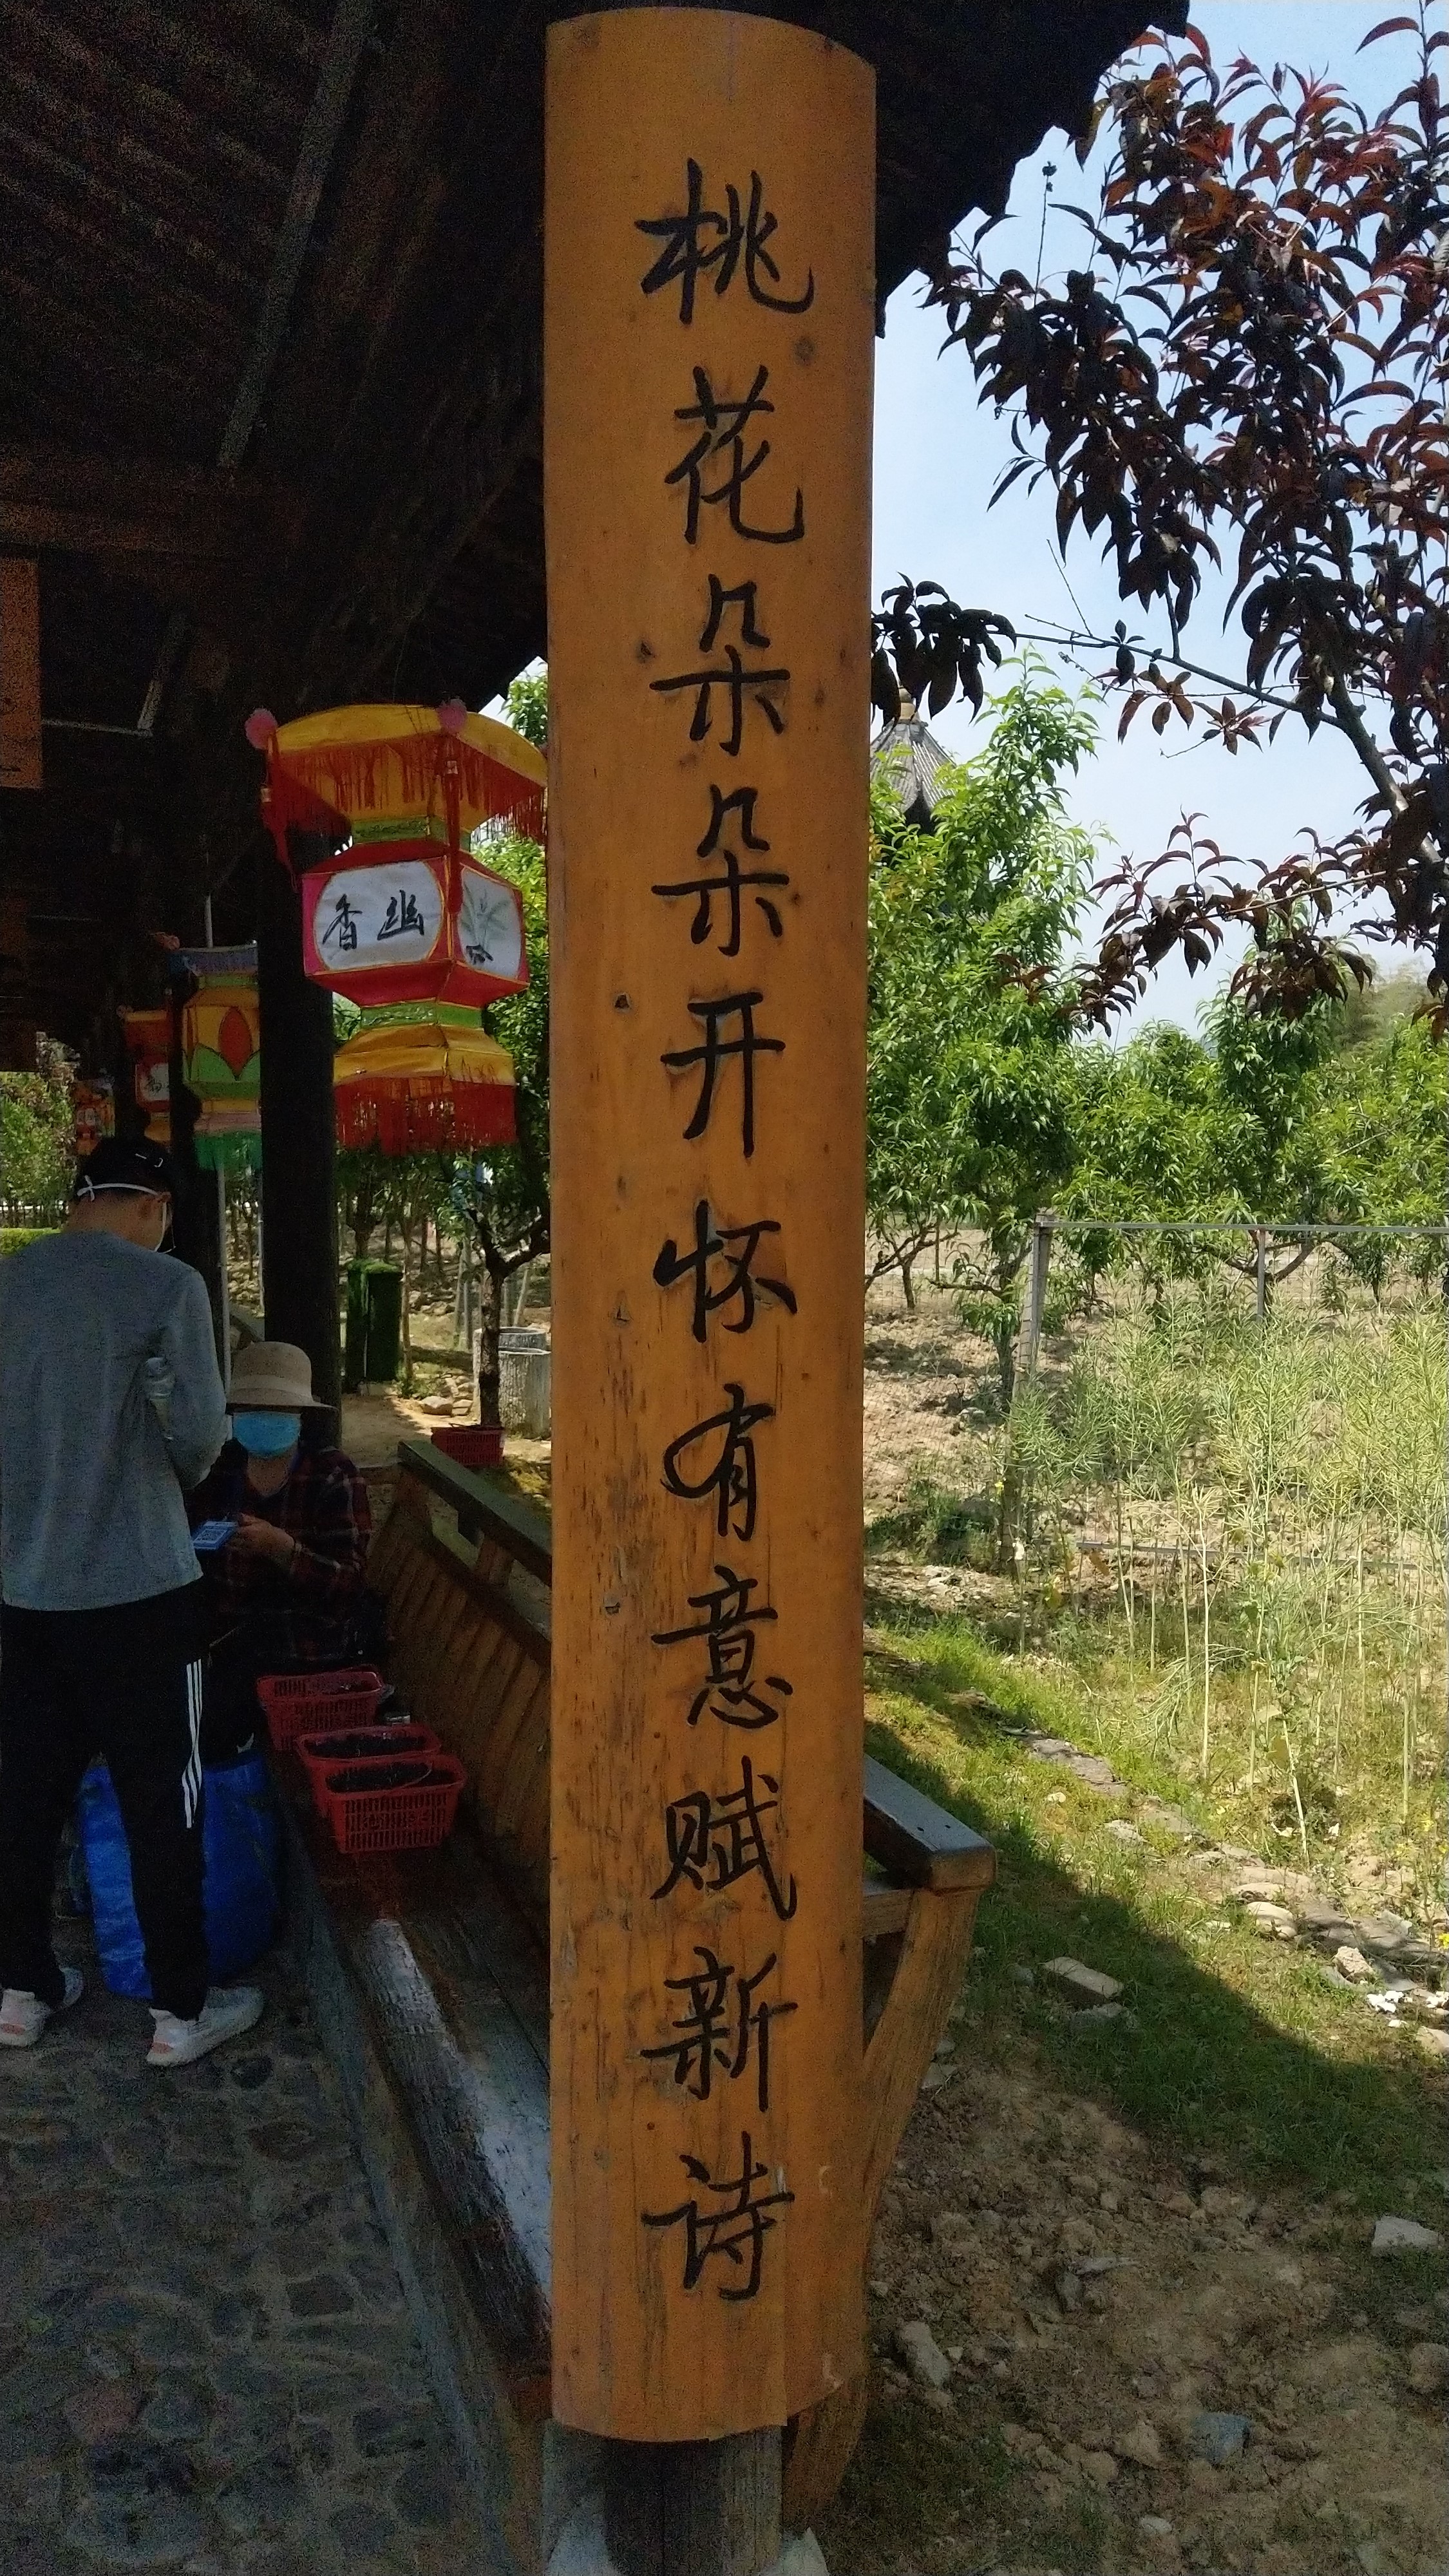 桃花朵朵开怀有意赋新诗
幽香